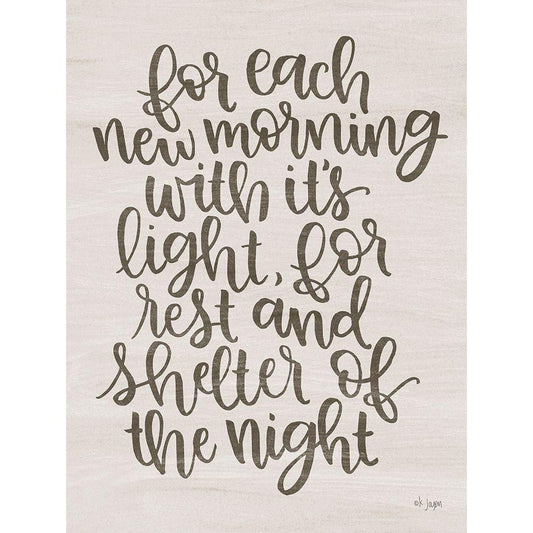 for each
new morning
with it's
light, for
rest and
shelter of
the night
©k jagen